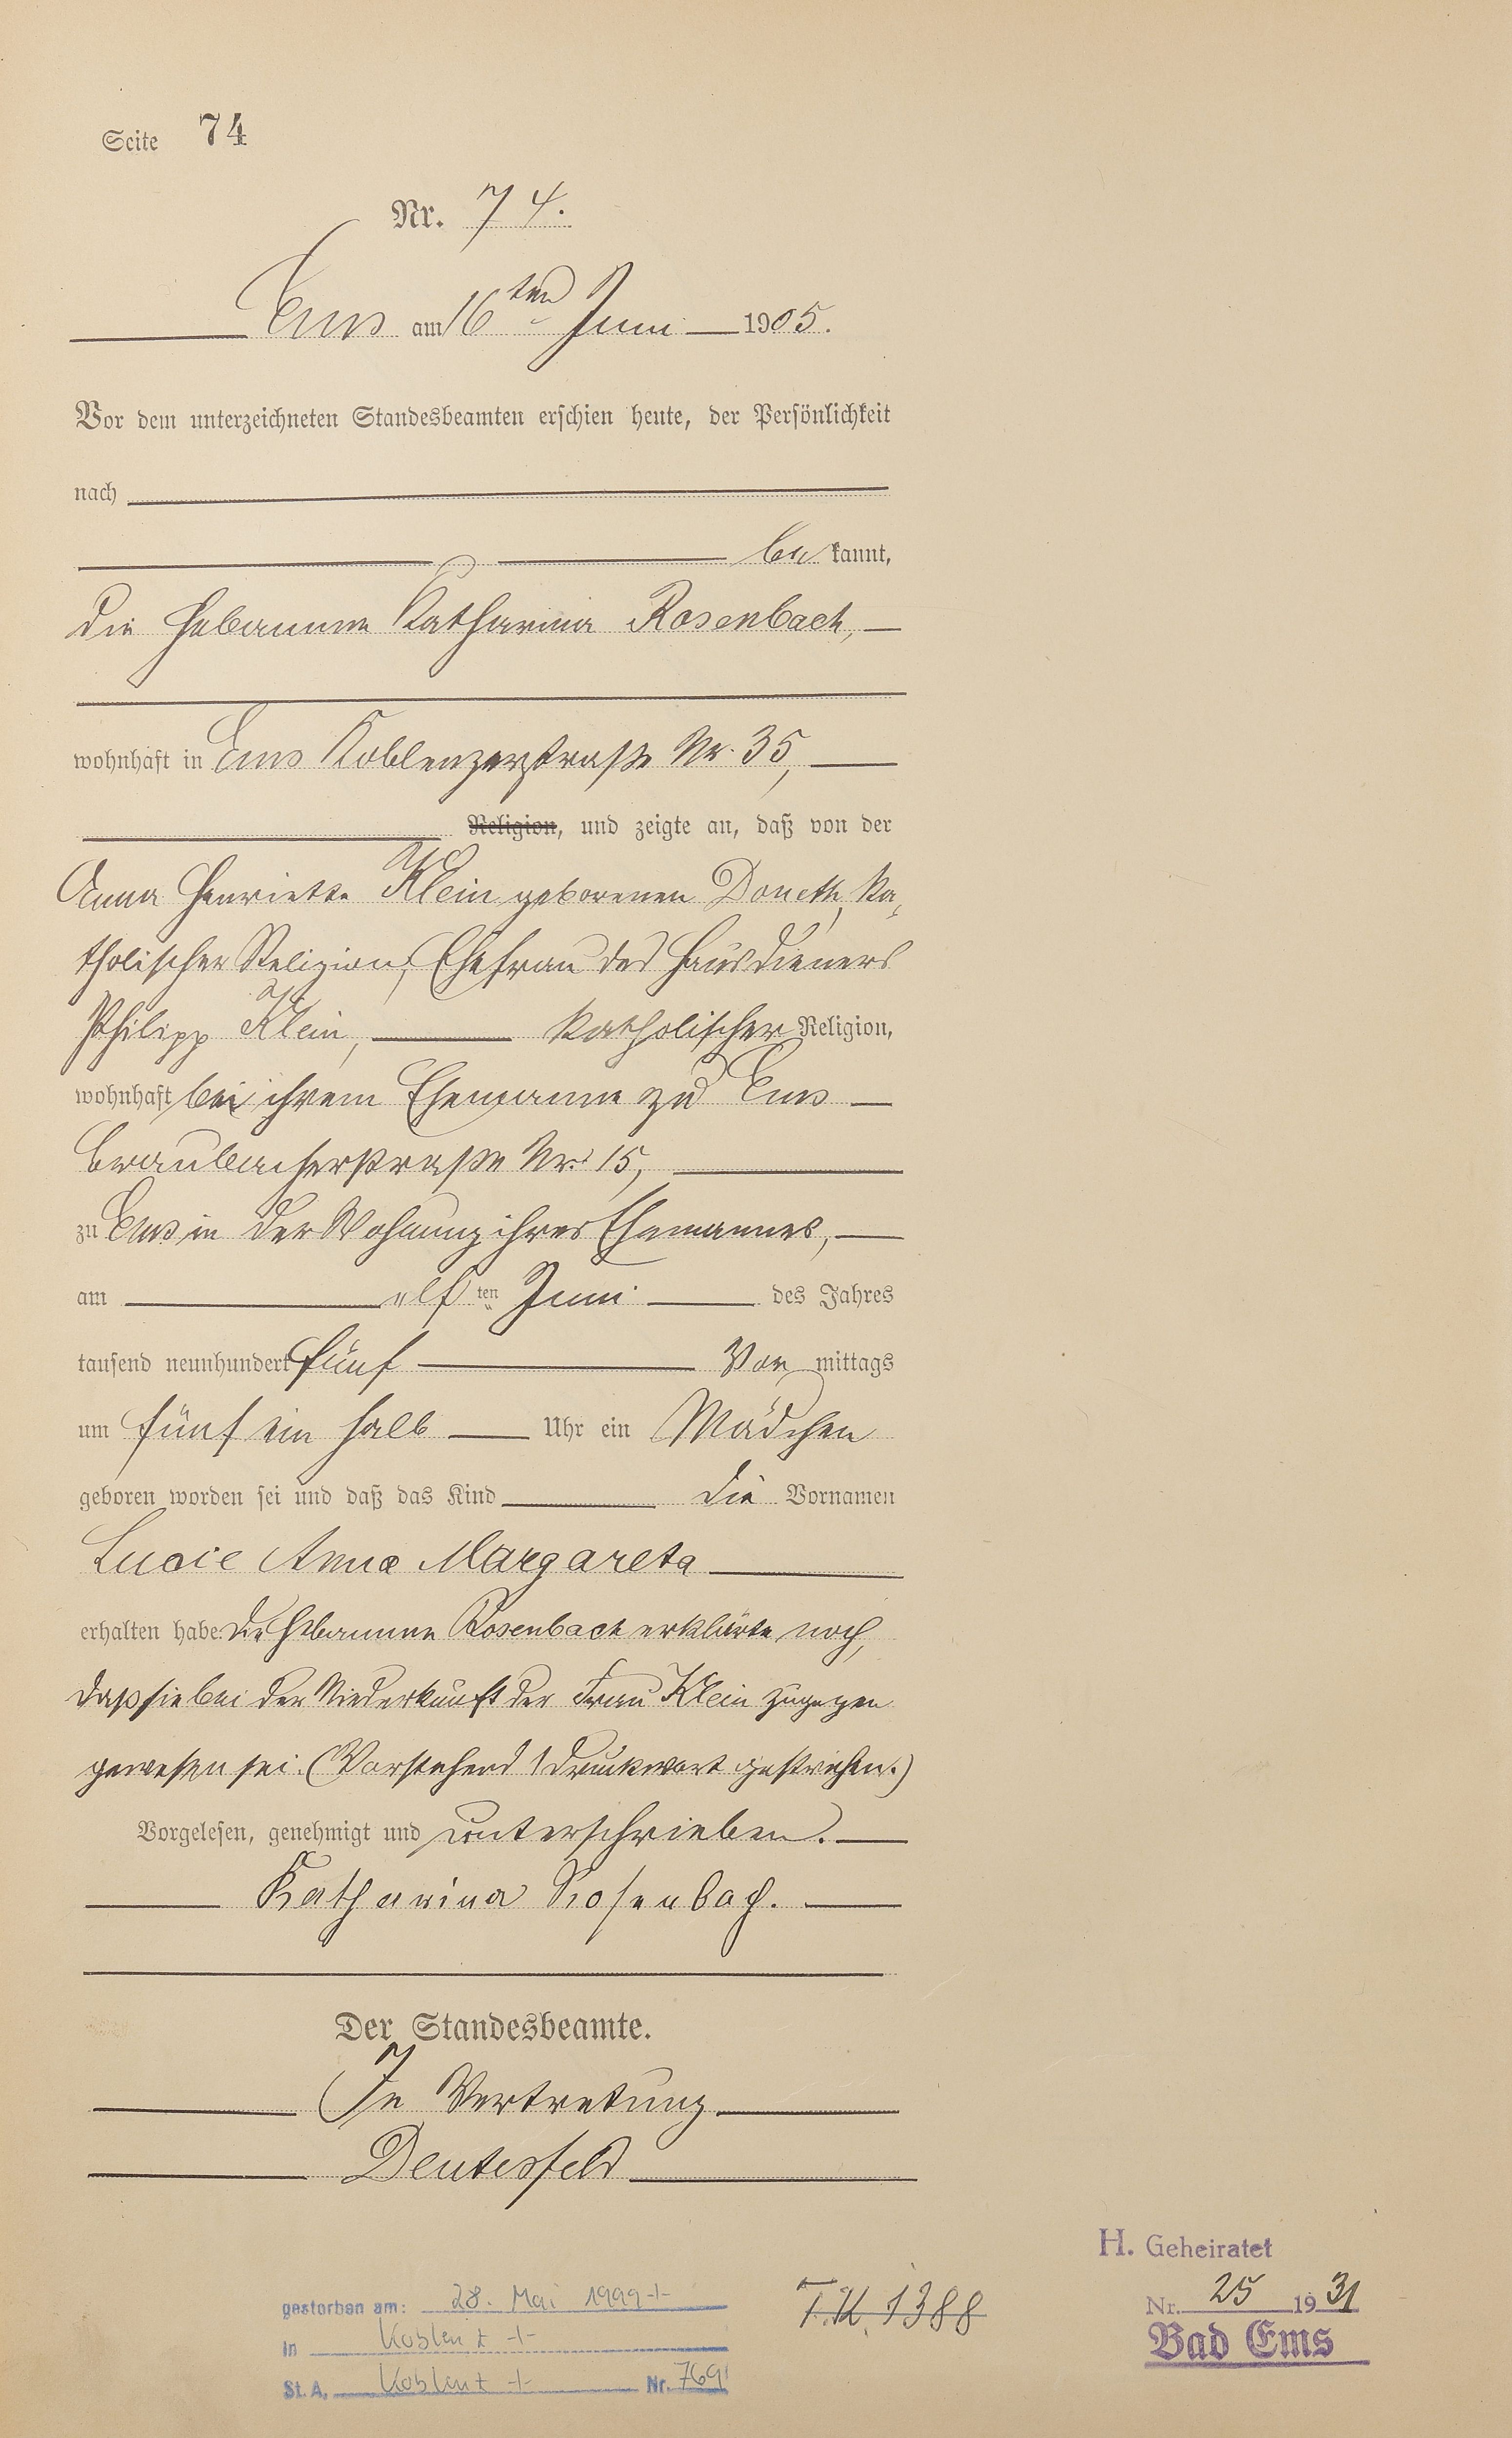 Seite 74
Nr. 74.
Ems am 16ten Juni 1905.
Vor dem unterzeichneten Standesbeamten erschien heute, der Persönlichkeit
nach
bekannt,
die Hebamme Katharina Rosenbach,
wohnhaft in Ems Koblenzerstraße Nr. 35,
Religion, und zeigte an, daß von der
Anna Henriette Klein geborenen Doneth, ka-
tholischer Religion, Ehefrau des Hausdieners
Philipp Klein, katholischer Religion,
wohnhaft bei ihrem Ehemanne zu Ems
Braubacherstraße Nr. 15,
zu Ems in der Wohnung ihres Ehemannes,
am elften Juni des Jahres
tausend neunhundert fünf Vormittags
um fünf ein halb Uhr ein Mädchen
geboren worden sei und daß das Kind die Vornamen
Lucie Anna Margareta
erhalten habe. Die Hebamme Rosenbach erklärte noch,
daß sie bei der Niederkunft der Frau Klein zugegen
gewesen sei. (Vorstehend 1 Druckwort gestrichen.)
Vorgelesen, genehmigt und unterschrieben.
Katharina Rosenbach.
Der Standesbeamte.
In Vertretung
Deutesfeld
H. Geheiratet
Nr. 25 1931
Bad Ems
gestorben am: 28. Mai 1999 +
in Koblenz +
St. A. Koblenz + Nr. 769
T.K. 1388